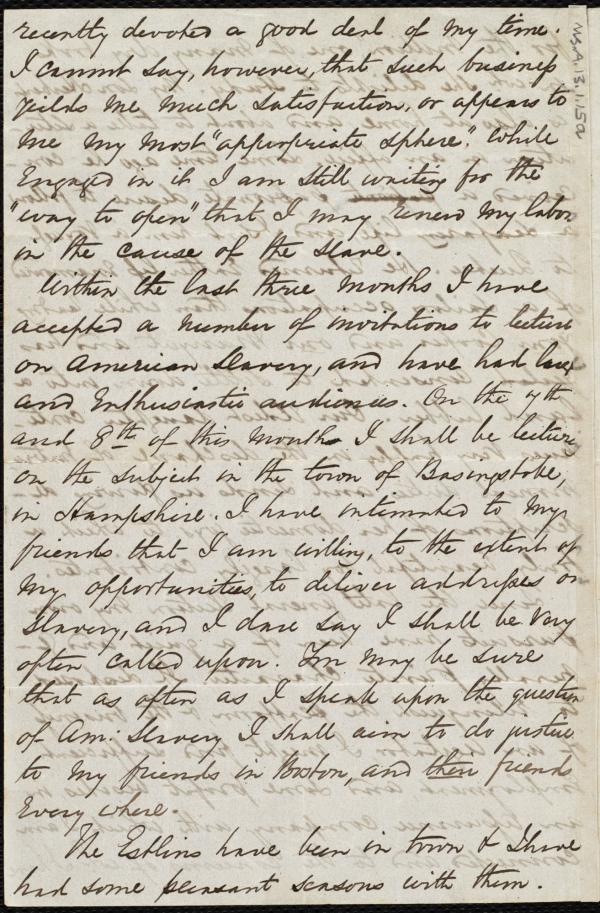 recently devoted a good deal of my time.
I cannot say, however, that such business
yeilds me much satisfaction, or appears to
me my most "appropriate sphere". While
engaged in it I am still waiting for the
"way to open" that I may renew my labor
in the cause of the slave.
Within the last three months I have
accepted a number of invitations to lecture
on American Slavery, and have had large
and enthusiastic audiences. On the 7th
and 8th of this month I shall be lecturing
on the subject in the town of Basingstoke,
in Hampshire. I have intimated to my
friends that I am willing, to the extent of
my opportunities, to deliver addresses on
Slavery, and I dare say I shall be very
often called upon. You may be sure
that as often as I speak upon the question
of Am: Slavery I shall aim to do justice
to my friends in Boston, and their friends
every where.
The Estlins have been in town & I have
had some pleasant seasons with them.